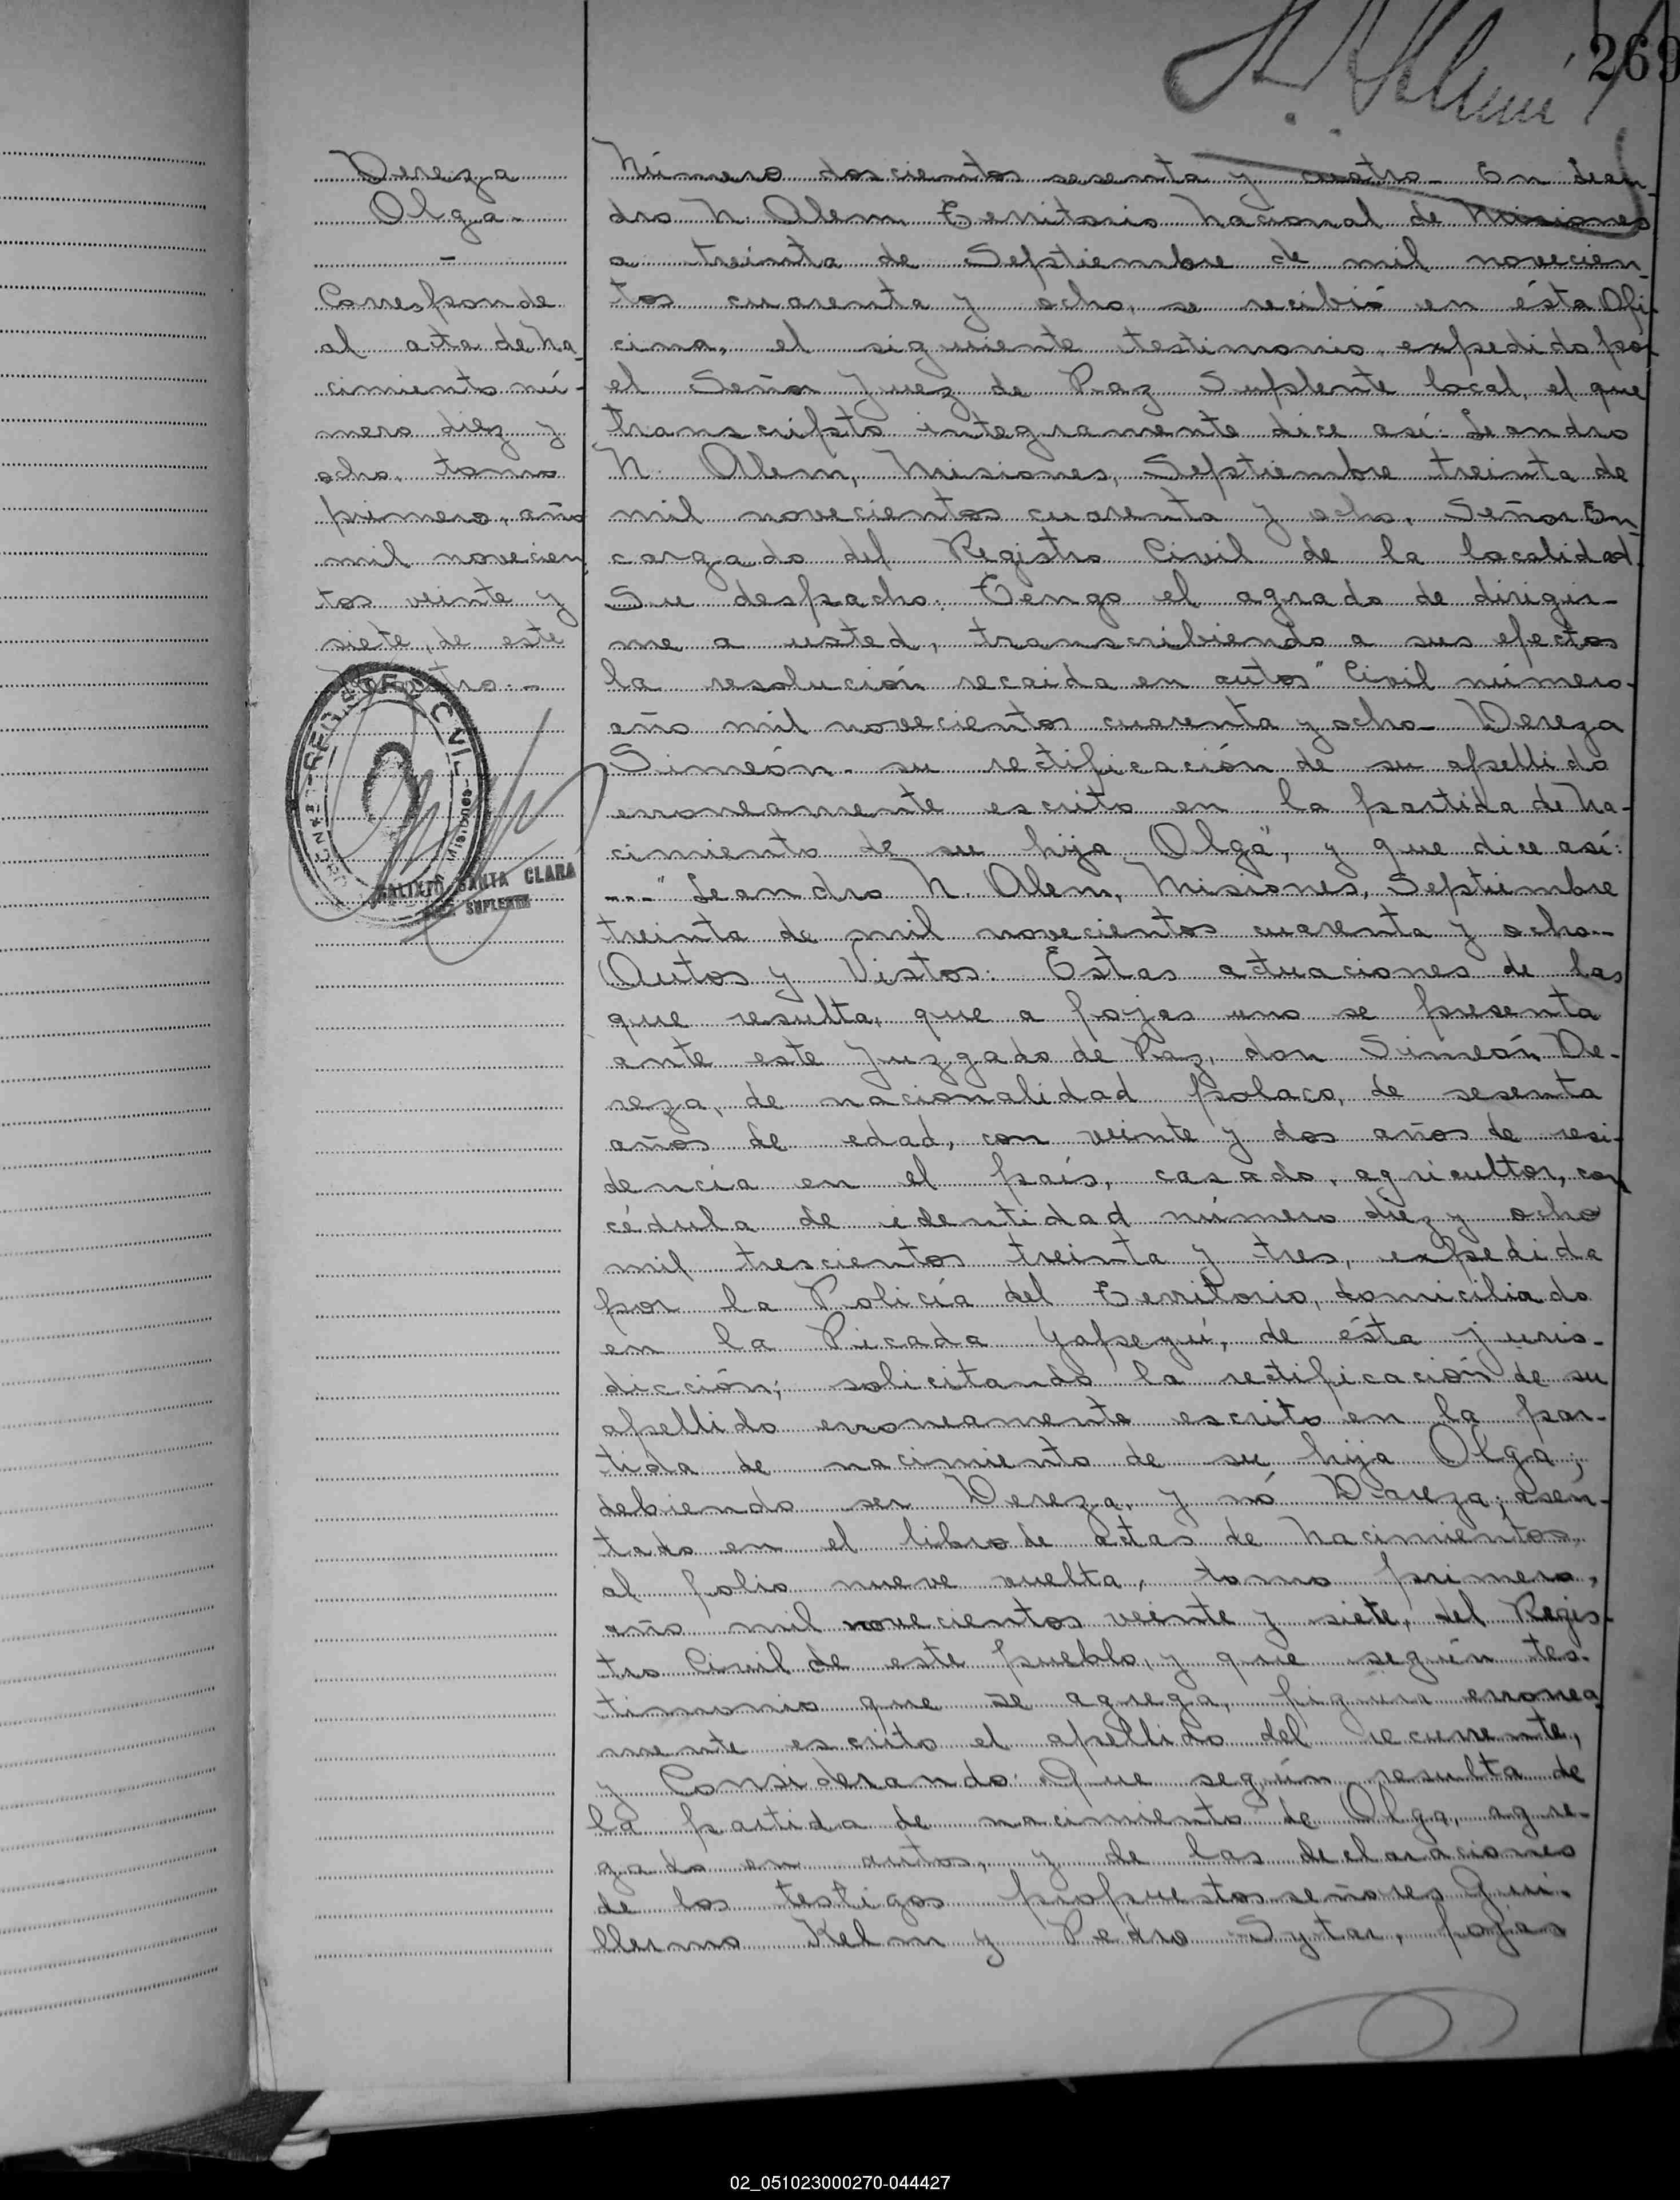 269
Dereza
Olga.-
-
Corresponde
al acta de Na-
cimiento nú-
mero diez y
ocho, tomo
primero, año
mil novecien
tos veinte y
siete, de este
REGISTRO CIVIL
MISIONES
CALIXTO SANTA CLARA
JUEZ SUPLENTE
Número doscientos sesenta y cuatro_ En Lean-
dro N. Alem Territorio Nacional de Misiones
a treinta de Septiembre de mil novecien-
tos cuarenta y ocho, se recibió en ésta Ofi-
cina, el siguiente testimonio expedido por
el Señor Juez de Paz Suplente local, el que
transcripto integramente dice así: Leandro
N. Alem, Misiones, Septiembre treinta de
mil novecientos cuarenta y ocho. Señor En-
cargado del Registro Civil de la localidad.
Su despacho: Tengo el agrado de dirigir-
me a usted, transcribiendo a sus efectos
la resolución recaida en autos "Civil número-
año mil novecientos cuarenta y ocho_ Dereza
Simeón_ su rectificación de su apellido
erroneamente escrito en la partida de Na-
cimiento de su hija Olga", y que dice así:
---"Leandro N. Alem, Misiones, Septiembre
treinta de mil novecientos cuarenta y ocho.-
Autos y Vistos: Estas actuaciones de las
que resulta, que a fojas uno se presenta
ante este Juzgado de Paz, don Simeón De-
reza, de nacionalidad polaco, de sesenta
años de edad, con veinte y dos años de resi-
dencia en el país, casado, agricultor, con
cédula de identidad número diez y ocho
mil trescientos treinta y tres, expedida
por la Policía del Territorio, domiciliado
en la Picada Yapeyú, de ésta juris-
dicción; solicitando la rectificación de su
apellido erroneamente escrito en la par-
tida de nacimiento de su hija Olga;
debiendo ser Dereza, y nó Dareza; asen-
tado en el libro de actas de Nacimientos,
al folio nueve vuelta, tomo primero,
año mil novecientos veinte y siete, del Regis-
tro Civil de este pueblo, y que según tes-
timonio que se agrega, figura erronea
mente escrito el apellido del recurrente,
y Considerando: Que según resulta de
la partida de nacimiento de Olga, agre-
gado en autos, y de las declaraciones
de los testigos propuestos señores Gui-
llermo Kelm y Pedro Sytar, fojas
02_051023000270-044427